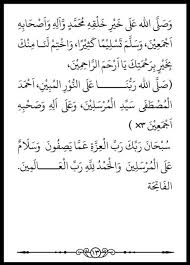 وَصَلَّى اللهُ عَلَى خَيْرِ خَلْقِهِ مُحَمَّدٍ وَّآلِهِ وَاَصْحَابِهِ
اَجْمَعِيْنَ، وَسَلَّمَ تَسْلِيْمًا كَثِيْرًا، وَاخْتِمْ لَنَا مِنْكَ
بِخَيْرٍ بِرَحْمَتِكَ يَا اَرْحَمَ الرَّاحِمِيْنَ،
وَصَلَّى اللهُ رَبُّنَا عَلَى النُّوْرِ الْمُبِيْنِ، اَحْمَدَ
الْمُصْطَفَى سَيِّدِ الْمُرْسَلِيْنَ، وَعَلَى آلِهِ وَصَحْبِهِ
اَجْمَعِيْنَ ×٣)
سُبْحَانَ رَبِّكَ رَبِّ الْعِزَّةِ عَمَّا يَصِفُوْنَ وَسَلَامٌ
عَلَى الْمُرْسَلِيْنَ وَالْحَمْدُ لِلّٰهِ رَبِّ الْعَالَمِيْنَ.
الْفَاتِحَةْ